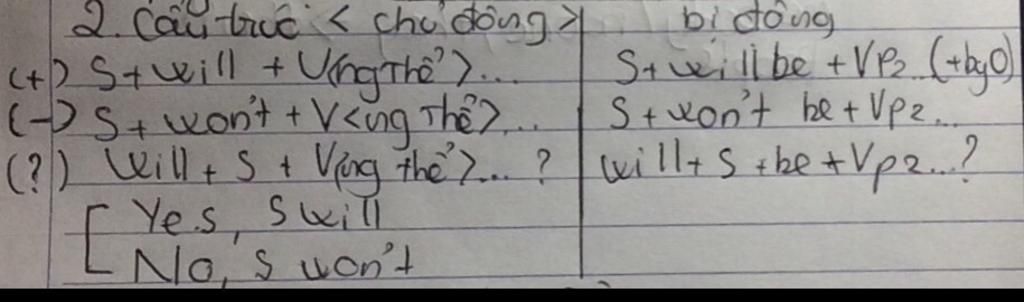 2. Cấu trúc < chủ động > bị động
(+) S + will + V(ng thể>... S + will be + Vp2 (+by O)
(-) S + won't + V<ng thể>... S + won't be + Vp2...
(?) Will + S + V(ng thể>...? will + S + be + Vp2...?
Yes, S will
No, S won't